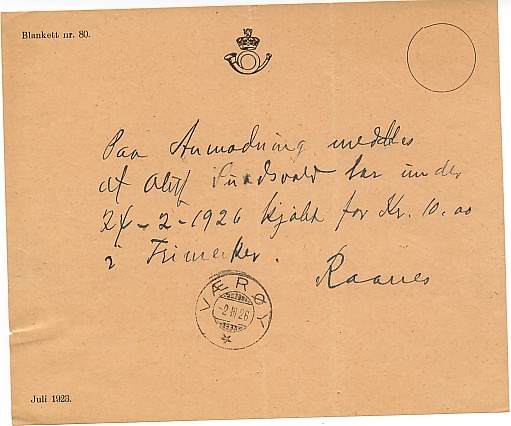 Blankett nr. 80.
Paa Anmodning meddeles
at Oluf Sundsvold har under
24-2-1926 kjøbt for Kr. 10.00
i Frimerker.
Raanes
VÆRØY
-2 III 26
Juli 1923.